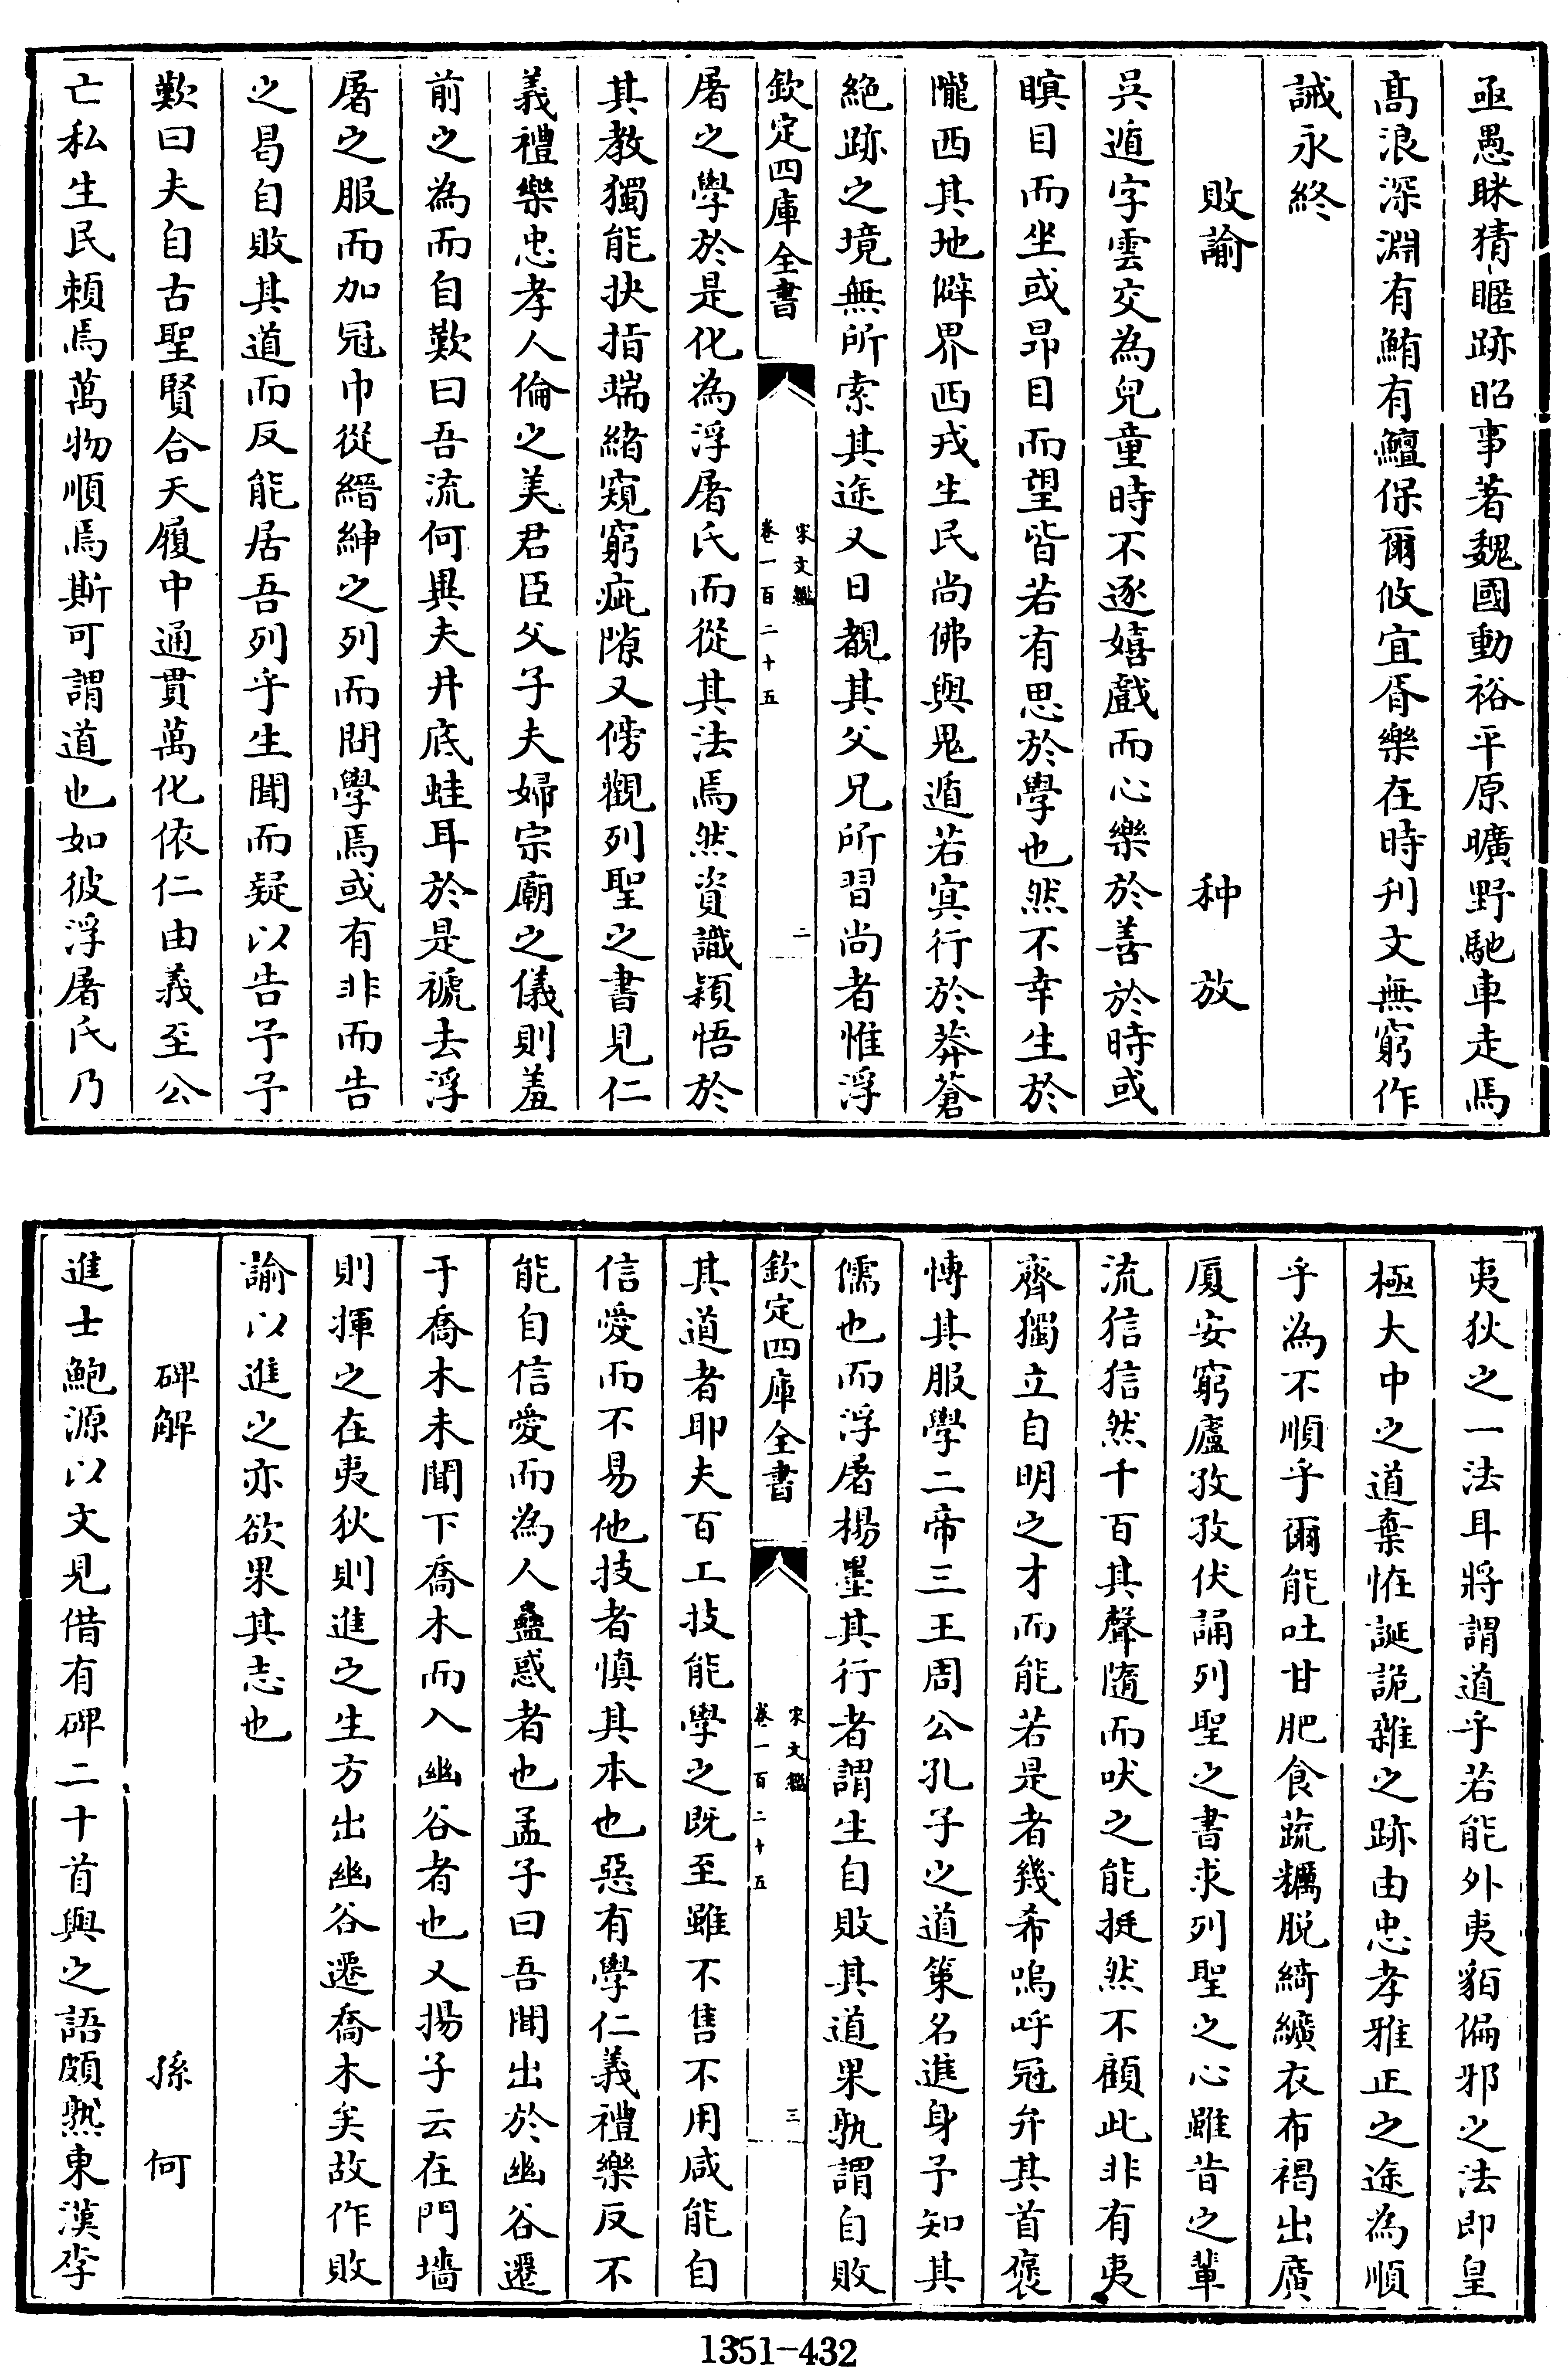 亟愚眯猜睚跡昭事著魏國動裕平原曠野馳車走馬
髙浪深淵有鮪有鱣保爾攸宜胥樂在時刋文無窮作
誡永終
敗諭 种放
吳遁字雲交為兒童時不逐嬉戲而心樂於善於時或
瞑目而坐或昻目而望皆若有思於學也然不幸生於
隴西其地僻界西戎生民尚佛與鬼遁若㝠行於莽蒼
絶跡之境無所索其途又日覩其父兄所習尚者惟浮
欽定四庫全書
宋文鑑
卷一百二十五
二
屠之學於是化為浮屠氏而從其法焉然資識穎悟於
其教獨能抉指端緒窺窮疵隙又傍觀列聖之書見仁
義禮樂忠孝人倫之美君臣父子夫婦宗廟之儀則羞
前之為而自歎曰吾流何異夫井底蛙耳於是褫去浮
屠之服而加冠巾從縉紳之列而問學焉或有非而告
之曷自敗其道而反能居吾列乎生聞而疑以告予予
歎曰夫自古聖賢合天履中通貫萬化依仁由義至公
亡私生民頼焉萬物順焉斯可謂道也如彼浮屠氏乃
夷狄之一法耳將謂道乎若能外夷貊偏邪之法即皇
極大中之道棄恠誕詭雜之跡由忠孝雅正之途為順
乎為不順乎爾能吐甘肥食蔬糲脱綺纊衣布褐出廣
厦安窮廬孜孜伏誦列聖之書求列聖之心雖昔之輩
流狺狺然千百其聲隨而吠之能挺然不顧此非有夷
齊獨立自明之才而能若是者幾希嗚呼冠弁其首褒
慱其服學二帝三王周公孔子之道䇿名進身予知其
儒也而浮屠楊墨其行者謂生自敗其道果孰謂自敗
欽定四庫全書
宋文鑑
卷一百二十五
三
其道者耶夫百工技能學之既至雖不售不用咸能自
信愛而不易他技者慎其本也惡有學仁義禮樂反不
能自信愛而為人蠱惑者也孟子曰吾聞出於幽谷遷
于喬木未聞下喬木而入幽谷者也又揚子云在門墻
則揮之在夷狄則進之生方出幽谷遷喬木矣故作敗
諭以進之亦欲果其志也
碑解 孫何
進士鮑源以文見借有碑二十首與之語頗熟東漢李
1351-432